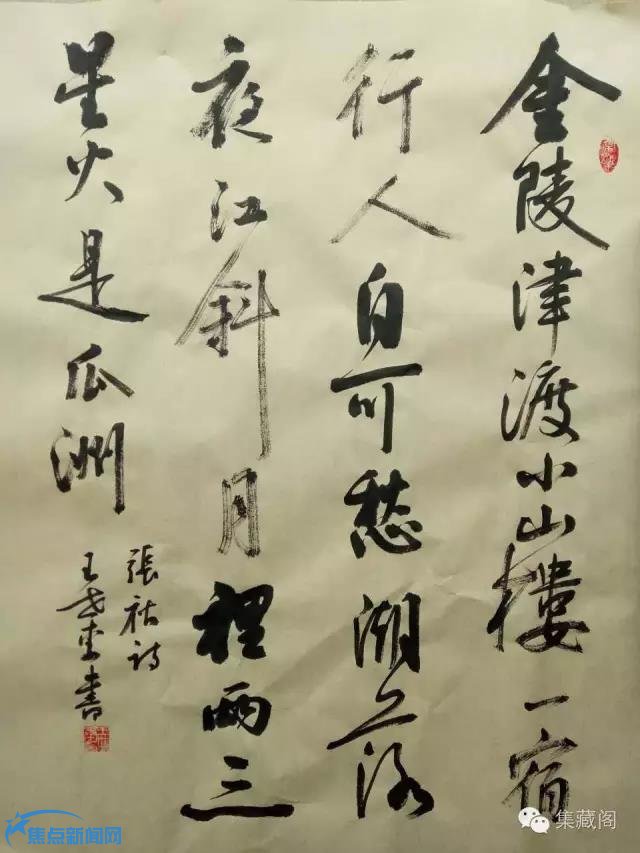 金陵津渡小山樓一宿
行人自可愁潮落
夜江斜月裡兩三
星火是瓜洲
張祜詩
王書
焦点新闻网
集藏阁